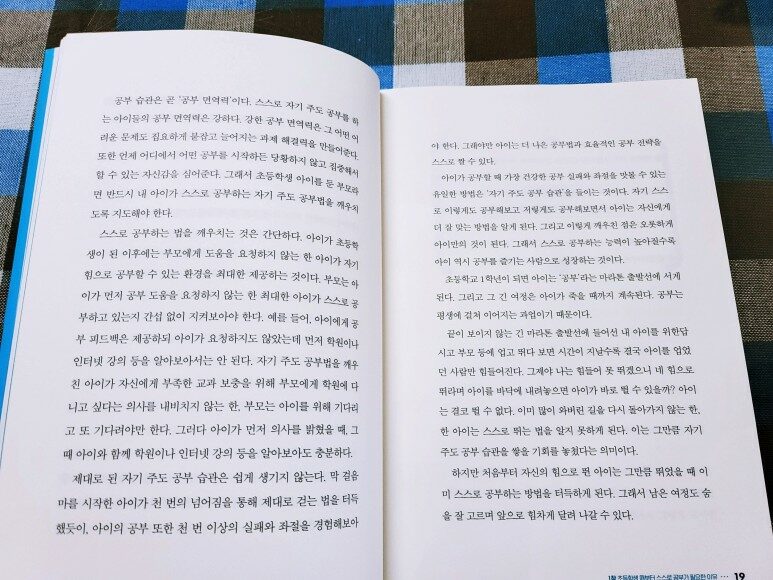 공부 습관은 곧 '공부 면역력'이다. 스스로 자기 주도 공부를 하
는 아이들의 공부 면역력은 강하다. 강한 공부 면역력은 그 어떤 어
려운 문제도 집요하게 붙잡고 늘어지는 과제 해결력을 만들어준다.
또한 언제 어디에서 어떤 공부를 시작하든 당황하지 않고 집중해서
할 수 있는 자신감을 심어준다. 그래서 초등학생 아이를 둔 부모라
면 반드시 내 아이가 스스로 공부하는 자기 주도 공부법을 깨우치
도록 지도해야 한다.
스스로 공부하는 법을 깨우치는 것은 간단하다. 아이가 초등학
생이 된 이후에는 부모에게 도움을 요청하지 않는 한 아이가 자기
힘으로 공부할 수 있는 환경을 최대한 제공하는 것이다. 부모는 아
이가 먼저 공부 도움을 요청하지 않는 한 최대한 아이가 스스로 공
부하고 있는지 간섭 없이 지켜보아야 한다. 예를 들어, 아이에게 공
부 피드백은 제공하되 아이가 요청하지도 않았는데 먼저 학원이나
인터넷 강의 등을 알아보아서는 안 된다. 자기 주도 공부법을 깨우
친 아이가 자신에게 부족한 교과 보충을 위해 부모에게 학원에 다
니고 싶다는 의사를 내비치지 않는 한, 부모는 아이를 위해 기다리
고 또 기다려야만 한다. 그러다 아이가 먼저 의사를 밝혔을 때, 그
때 아이와 함께 학원이나 인터넷 강의 등을 알아보아도 충분하다.
제대로 된 자기 주도 공부 습관은 쉽게 생기지 않는다. 막 걸음
마를 시작한 아이가 천 번의 넘어짐을 통해 제대로 걷는 법을 터득
했듯이, 아이의 공부 또한 천 번 이상의 실패와 좌절을 경험해보아
야 한다. 그래야만 아이는 더 나은 공부법과 효율적인 공부 전략을
스스로 짤 수 있다.
아이가 공부할 때 가장 건강한 공부 실패와 좌절을 맛볼 수 있는
유일한 방법은 '자기 주도 공부 습관'을 들이는 것이다. 자기 스스
로 이렇게도 공부해보고 저렇게도 공부해보면서 아이는 자신에게
더 잘 맞는 방법을 알게 된다. 그리고 이렇게 깨우친 점은 오롯하게
아이만의 것이 된다. 그래서 스스로 공부하는 능력이 높아질수록
아이 역시 공부를 즐기는 사람으로 성장하는 것이다.
초등학교 1학년이 되면 아이는 '공부'라는 마라톤 출발선에 서게
된다. 그리고 그 긴 여정은 아이가 죽을 때까지 계속된다. 공부는
평생에 걸쳐 이어지는 과업이기 때문이다.
끝이 보이지 않는 긴 마라톤 출발선에 들어선 내 아이를 위한답
시고 부모 등에 업고 뛰다 보면 시간이 지날수록 결국 아이를 업었
던 사람만 힘들어진다. 그제야 나는 힘들어 못 뛰겠으니 네 힘으로
뛰라며 아이를 바닥에 내려놓으면 아이가 바로 뛸 수 있을까? 아이
는 결코 뛸 수 없다. 이미 많이 와버린 길을 다시 돌아가지 않는 한,
한 아이는 스스로 뛰는 법을 알지 못하게 된다. 이는 그만큼 자기
주도 공부 습관을 쌓을 기회를 놓쳤다는 의미이다.
하지만 처음부터 자신의 힘으로 뛴 아이는 그만큼 뛰었을 때 이
미 스스로 공부하는 방법을 터득하게 된다. 그래서 남은 여정도 숨
을 잘 고르며 앞으로 힘차게 달려 나갈 수 있다.
1장 초등학생 때부터 스스로 공부가 필요한 이유 ··· 19